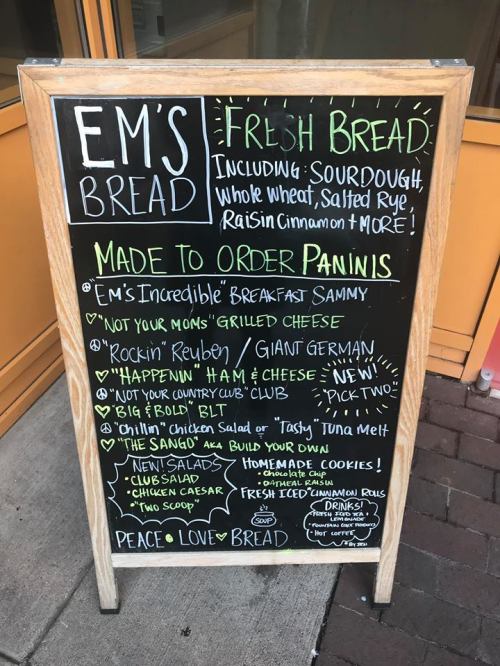 EM'S
BREAD
FRESH BREAD
INCLUDING: SOURDOUGH,
Whole Wheat, Salted Rye,
Raisin Cinnamon + MORE!
MADE TO ORDER PANINIS
"Em's Incredible" BREAKFAST SAMMY
"NOT YOUR MOMS" GRILLED CHEESE
"Rockin" Reuben / GIANT GERMAN
"HAPPENIN" HAM & CHEESE
"NOT YOUR COUNTRY CLUB" CLUB
"BIG & BOLD" BLT
NEW!
"PICK TWO"
"Chillin" Chicken Salad or "Tasty" Tuna Melt
"THE SANGO" AKA BUILD YOUR OWN
NEW! SALADS
• CLUB SALAD
• CHICKEN CAESAR
• "TWO SCOOP"
HOMEMADE COOKIES!
• Chocolate Chip
• OATMEAL RAISIN
FRESH ICED CINNAMON ROLLS
SOUP
DRINKS!
• FRESH ICED TEA &
LEMONADE
• HOT COFFEE
PEACE LOVE BREAD